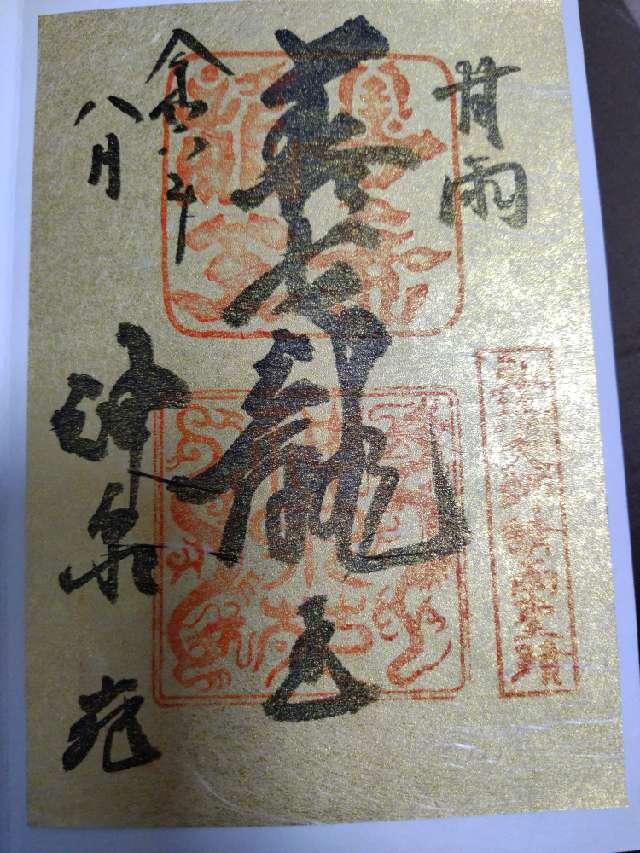 甘雨
善女龍王
令和六年
八月
神泉苑